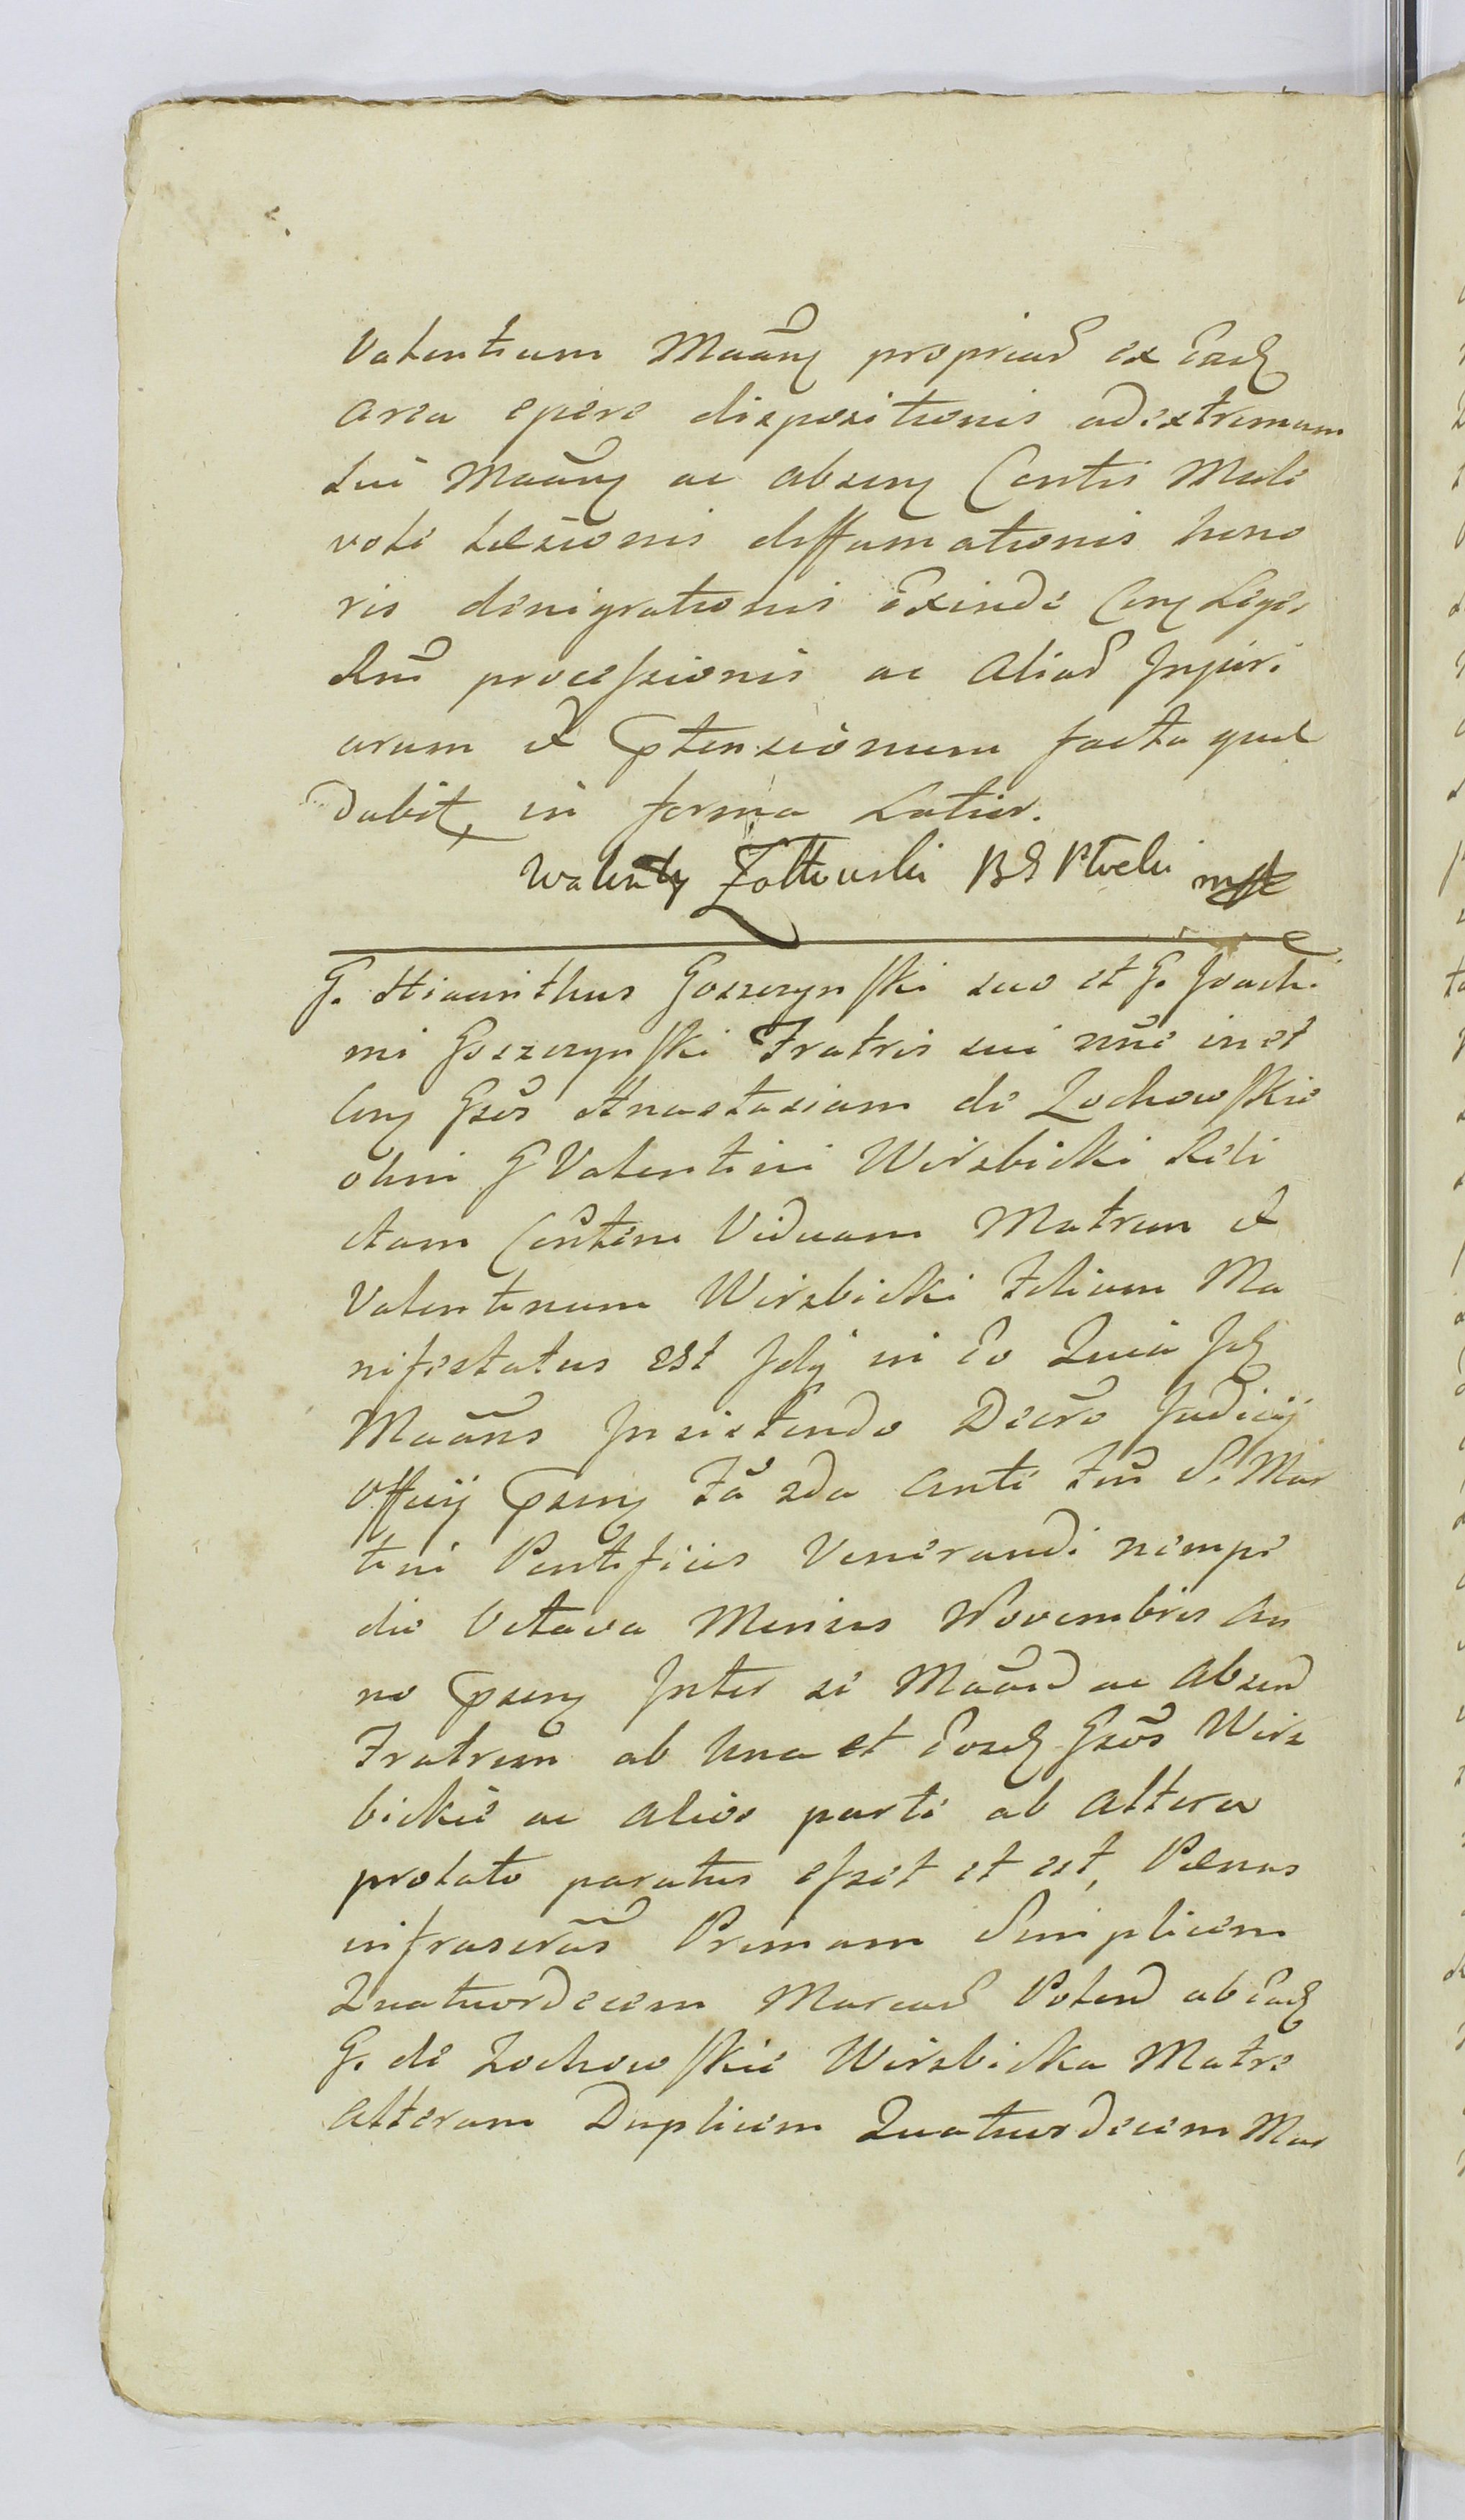 Valentium Maãn propriad ex Eãd
area opere dispositionis ad extremam
Sui Maãn ac absen Contis Mali
voli Læsionis diffamationis hono
ris denigrationis Exinde Con Legis
Rni processionis ac Aliad Injuri
arum et Ptensionum facta quæ
dabit in forma Latior.
Walenty Zołtowski BG
G. Hiacinthus Goszczynski suo et G. Joachi
mi Goszczynski Fratris sui nñe in et
Con Gsõs Anastasiam de Zochowskie
olim G Valentini Wirzbicki Reli
ctam Consten Viduam Matrem et
Valentinum Wirzbicki Filium Ma
nifestatus est Idq in Eo Quia Id
Maãns Insistendo Decrõ Judicij
Officij Psen Fã 2da Anti Fm S. Mar
tini Pontificis Venerandi nempe
die Octava Mensis Novembris An
no Psen Inter se Maãnd ac Absend
Fratrem ab Una et Eosd Gsõs Wirz
bickie ac Alios parte ab Altera
prolato paratus esset et est, Pœnas
infrascrãs Primam Simplicem
Quatuordecem Marcad Polend ab Ead
G. de Zochowskie Wirzbicka Matre
Alteram Duplicem Quatuordecem Mar